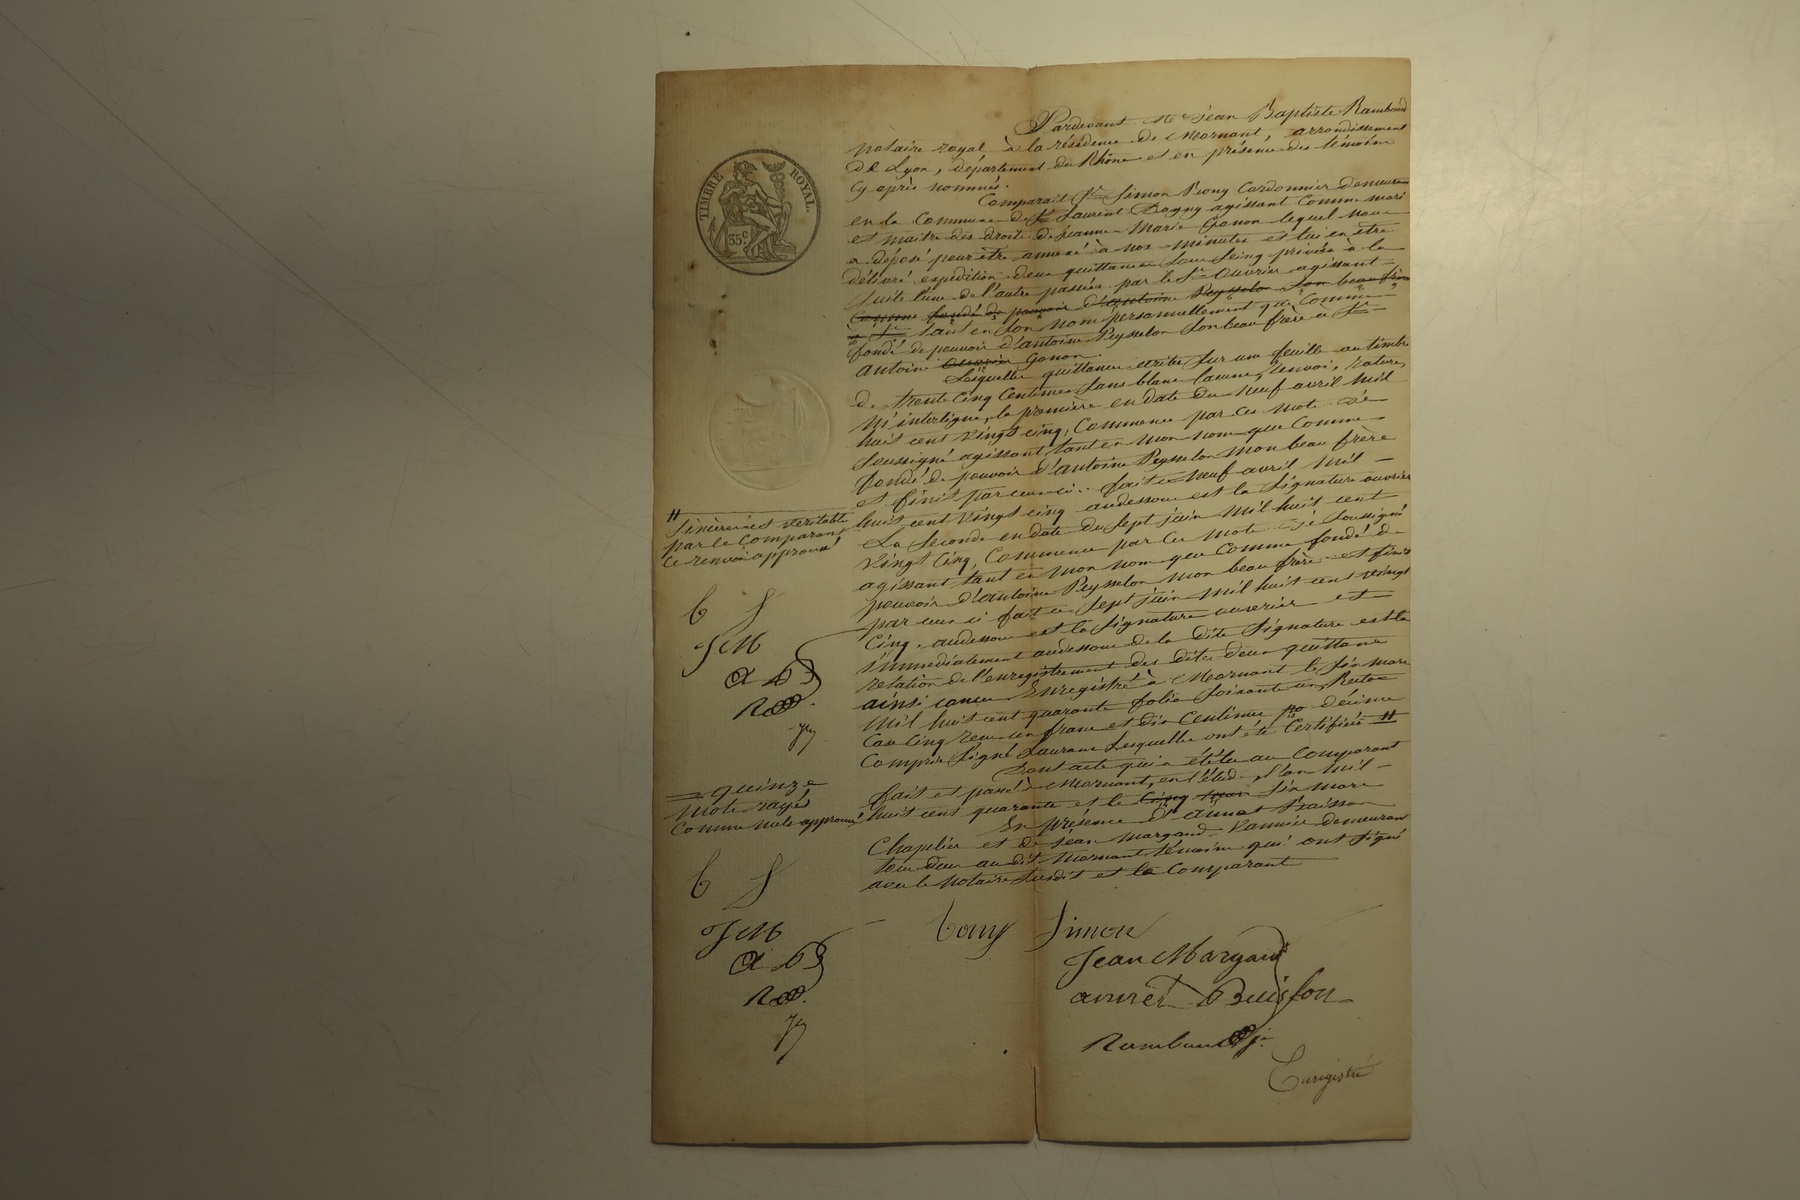 TIMBRE ROYAL.
35 c.
Pardevant Me Jean Baptiste Rambaud
notaire royal à la résidence de Mornant, arrondissement
de Lyon, département du Rhône et en présence des témoins
cy après nommés.
Comparait Sr Simon Cordonnier demeurant
en la Commune de St Laurent Dagny agissant comme mari
et maitre des droits de Jeanne Marie Gonon lequel nous
a déposé pour être annexé à nos minutes et lui en être
délivré expédition deux quittances sous seing privées à la
suite l'une de l'autre passées par le Sr Ouvrier agissant
comme fondé de pouvoir d'antoine Peysselon son beau frère
à Sr tant en son nom personnellement que Comme
fondé de pouvoir d'antoine Peysselon son beau frère à Sr
antoine Ouvrier Gonon.
Lesquelles quittances écrites sur une feuille au timbre
de trente cinq Centimes sans blanc lacune, renvoi, rature
ni interligne, la première en date du neuf avril mil
huit cent vingt cinq, Commence par ces mots Je
soussigné agissant tant en mon nom que Comme
fondé de pouvoir d'antoine Peysselon mon beau frère
et finit par ceux-ci fait ce neuf avril mil
huit cent vingt cinq audessous est la signature ouvrier
La Seconde en date du sept juin mil huit cent
vingt cinq, Commence par ces mots Je soussigné
agissant tant en mon nom que Comme fondé de
pouvoir d'antoine Peysselon mon beau frère et finit
par ceux ci fait ce sept juin mil huit cent vingt
cinq, audessous est la signature ouvrier et
immédiatement audessous de la dite signature est la
relation de l'enregistrement des dites deux quittances
ainsi conçu Enregistré à Mornant le six mars
mil huit cent quarante folio soixante un, Recto
Case cinq reçu un franc et dix centimes décime
Compris signé Laurans Lesquelles ont été Certifiées #
Dont acte qui a été lu au Comparant
fait et passé à Mornant, en l'étude, l'an mil
huit cent quarante et le cinq mars six mars
En présence d'annet Buisson
Chapelier et de Jean Margand Vannier demeurant
tous deux au dit Mornant témoins qui ont signé
avec le notaire susdit et le Comparant
# sincères et véritables
par le Comparant
ce renvoi approuvé
b S
JM
a B
R
= quinze
mots rayés
comme nuls approuvés
b S
JM
a B
R
Simon
Jean Margand
annet Buisson
Rambaud
Enregistré